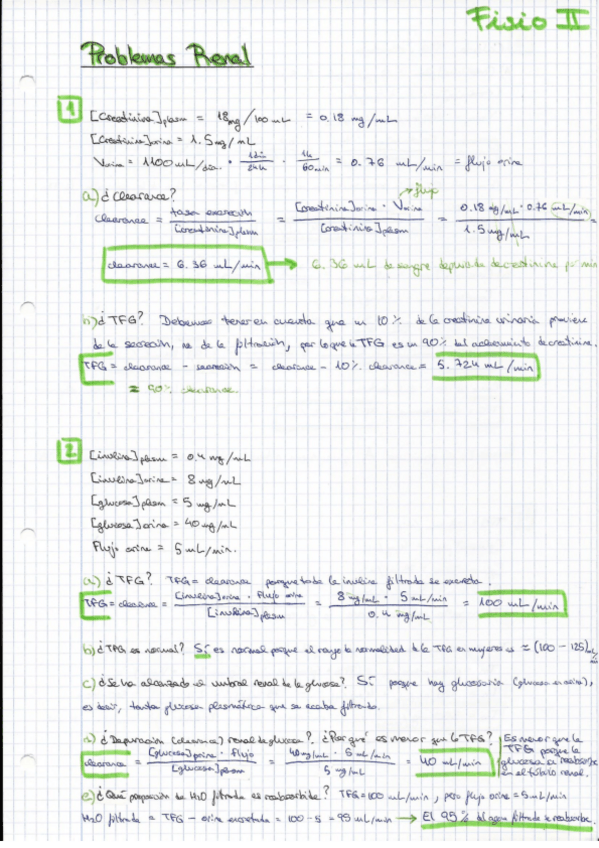 Fisio II
Problemas Renal
1
[Creatinina]plasm = 18mg/100 mL = 0.18 mg/mL
[Creatinina]orina = 1.5 mg/mL
Vorina = 1100 mL/día · 1día/24h · 1h/60min = 0.76 mL/min = flujo orina
a) ¿Clearance?
→ flujo
clearance = tasa excreción / [creatinina]plasm = [creatinina]orina · Vorina / [creatinina]plasm = 0.18 mg/mL · 0.76 mL/min / 1.5 mg/mL =
clearance = 6.36 mL/min → 6.36 mL de sangre depurada de creatinina por min
b) ¿TFG? Debemos tener en cuenta que un 10% de la creatinina urinaria proviene
de la secreción, no de la filtración, por lo que la TFG es un 90% del aclaramiento de creatinina.
TFG = clearance - secreción = clearance - 10% clearance = 5.724 mL/min
= 90% clearance
2
[inulina]plasm = 0,4 mg/mL
[inulina]orina = 8 mg/mL
[glucosa]plasm = 5 mg/mL
[glucosa]orina = 40 mg/mL
Flujo orina = 5 mL/min.
a) ¿TFG? TFG = clearance porque toda la inulina filtrada se excreta.
TFG = clearance = [inulina]orina · Flujo orina / [inulina]plasm = 8 mg/mL · 5 mL/min / 0.4 mg/mL = 100 mL/min
b) ¿TFG es normal? Sí es normal porque el rango de normalidad de la TFG en mujeres es ≈ (100 - 125) mL
c) ¿Se ha alcanzado el umbral renal de la glucosa? Sí porque hay glucosuria (glucosa en orina),
es decir, tanta glucosa plasmática que se acaba filtrando.
d) ¿Depuración (clearance) renal de glucosa? ¿Por qué es menor que la TFG?
clearance = [glucosa]orina · flujo / [glucosa]plasm = 40mg/mL · 5 mL/min / 5 mg/mL = 40 mL/min
Es menor que la
TFG porque la
glucosa se reabsorbe
en el túbulo renal.
e) ¿Qué proporción de H2O filtrada es reabsorbida? TFG = 100 mL/min, pero flujo orina = 5 mL/min
H2O filtrada = TFG - orina excretada = 100 - 5 = 95 mL/min → El 95% del agua filtrada se reabsorbe.